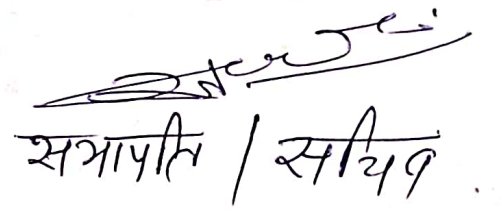 सभापति / सचिव